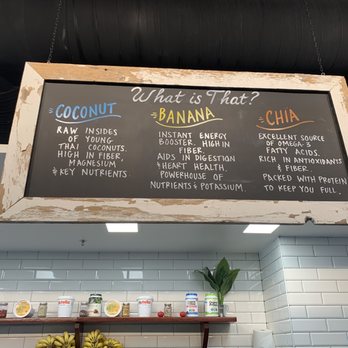 What is That?
COCONUT
RAW INSIDES
OF YOUNG
THAI COCONUTS.
HIGH IN FIBER,
MAGNESIUM
& KEY NUTRIENTS.
BANANA
INSTANT ENERGY
BOOSTER. HIGH IN
FIBER.
AIDS IN DIGESTION
& HEART HEALTH.
POWERHOUSE OF
NUTRIENTS & POTASSIUM.
CHIA
EXCELLENT SOURCE
OF OMEGA-3
FATTY ACIDS.
RICH IN ANTIOXIDANTS
& FIBER.
PACKED WITH PROTEIN
TO KEEP YOU FULL.